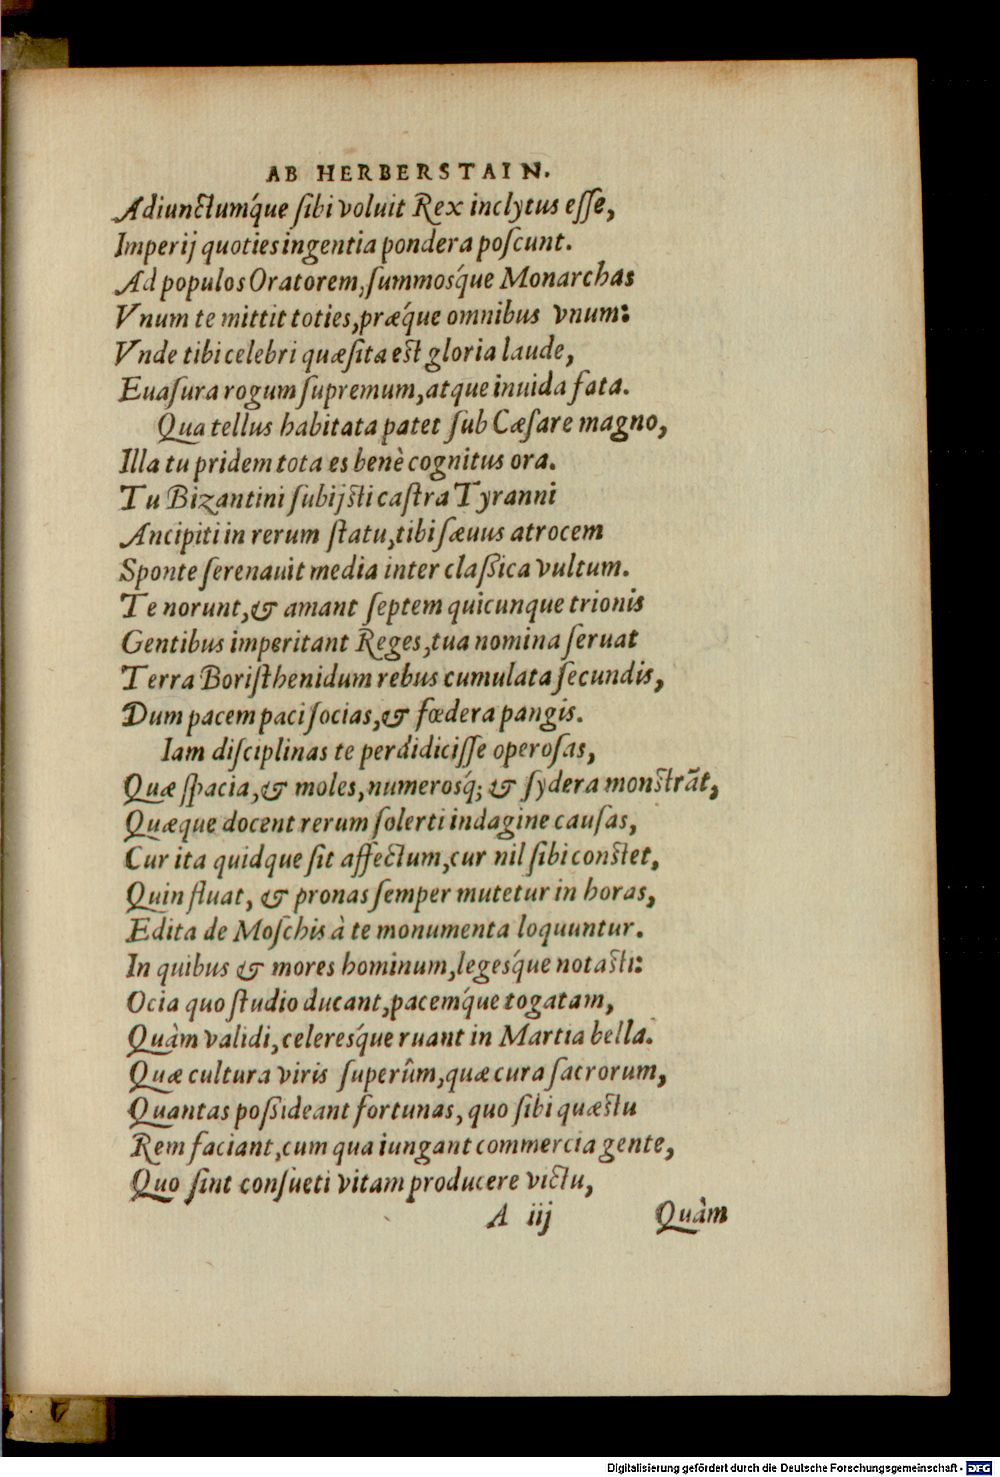 AB HERBERSTAIN.
Adiunctumq́ue ſibi voluit Rex inclytus eſſe,
Imperij quoties ingentia pondera poſcunt.
Ad populos Oratorem, ſummosq́ue Monarchas
Vnum te mittit toties, præq́ue omnibus vnum:
Vnde tibi celebri quæſita est gloria laude,
Euaſura rogum ſupremum, atque inuida fata.
Qua tellus habitata patet ſub Cæſare magno,
Illa tu pridem tota es benè cognitus ora.
Tu Bizantini ſubijsti caſtra Tyranni
Ancipiti in rerum ſtatu, tibi ſæuus atrocem
Sponte ſerenauit media inter claßica vultum.
Te norunt, & amant ſeptem quicunque trionis
Gentibus imperitant Reges, tua nomina ſeruat
Terra Boriſthenidum rebus cumulata ſecundis,
Dum pacem paci ſocias, & fœdera pangis.
Iam diſciplinas te perdidiciſſe operoſas,
Quæ ſpacia, & moles, numerosq́; & ſydera monstrãt,
Quæque docent rerum ſolerti indagine cauſas,
Cur ita quidque ſit affectum, cur nil ſibi constet,
Quin fluat, & pronas ſemper mutetur in horas,
Edita de Moſchis à te monumenta loquuntur.
In quibus & mores hominum, legesq́ue notasti:
Ocia quo ſtudio ducant, pacemq́ue togatam,
Quàm validi, celeresq́ue ruant in Martia bella.
Quæ cultura viris ſuperûm, quæ cura ſacrorum,
Quantas poßideant fortunas, quo ſibi quæstu
Rem faciant, cum qua iungant commercia gente,
Quo ſint conſueti vitam producere victu,
A iij Quàm
Digitalisierung gefördert durch die Deutsche Forschungsgemeinschaft - DFG